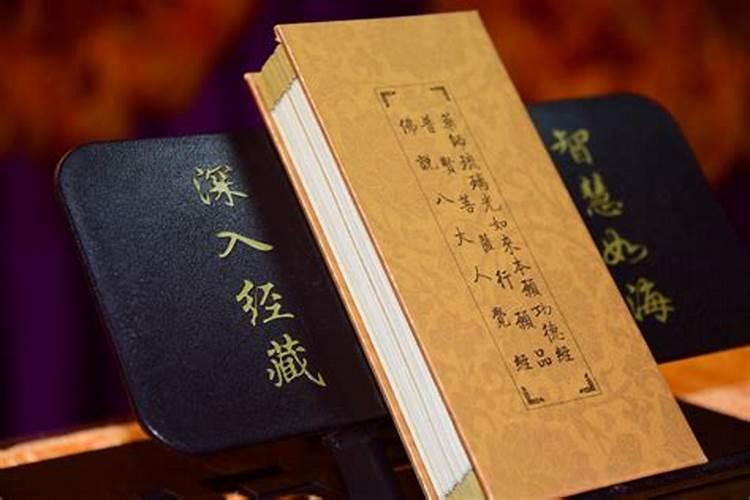 深入经藏
藥師琉璃光如來本願功德經
普賢菩薩行願品
佛說八大人覺經
智慧如海